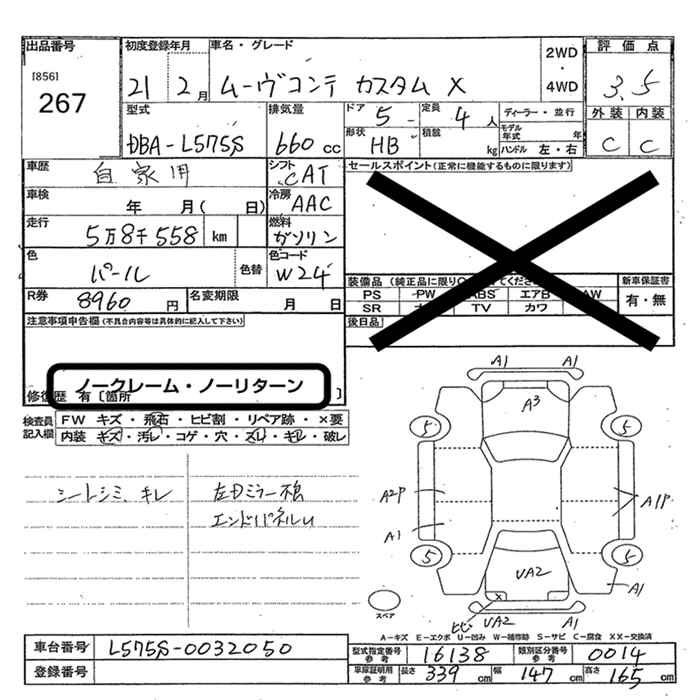 出品番号
[856]
267
初度登録年月
21 2月
車名・グレード
ムーヴコンテ カスタム X
2WD
・
4WD
評価点
3.5
型式
DBA-L575S
排気量
660 cc
ドア 5 -
定員 4 人
形状 HB
積載 kg
ディーラー・並行
モデル年式 年
ハンドル 左・右
外装 内装
C C
車歴 自家用
シフト CAT
車検 年 月( 日)
冷房 AAC
走行 5万8千558 km
燃料 ガソリン
色 パール
色替
色コード W24
R券 8960 円
名変期限 月 日
セールスポイント(正常に機能するものに限ります)
装備品(純正品に限り てくださ
新車保証書
PS PW ABS エアB AW
有・無
SR TV カワ
後日品
注意事項申告欄(不具合内容等は具体的に記入して下さい)
ノークレーム・ノーリターン
修復歴 有 [箇所 ]
検査員記入欄
FW キズ・飛石・ヒビ割・リペア跡・×要
内装 キズ・汚レ・コゲ・穴・スレ・キレ・破レ
シートシミ、キレ
左Dミラー不良
エンドパネルU
A1 A1
A3
5 5
A2P
A1P
A1
5 5
UA2
A1
ヒビ UA2
A1
スペア
A-キズ E-エクボ U-凹み W-補修跡 S-サビ C-腐食 XX-交換済
車台番号 L575S-0032050
登録番号
型式指定番号参考 16138
類別区分番号参考 0014
車庫証明用参考 長さ 339 cm 幅 147 cm 高さ 165 cm